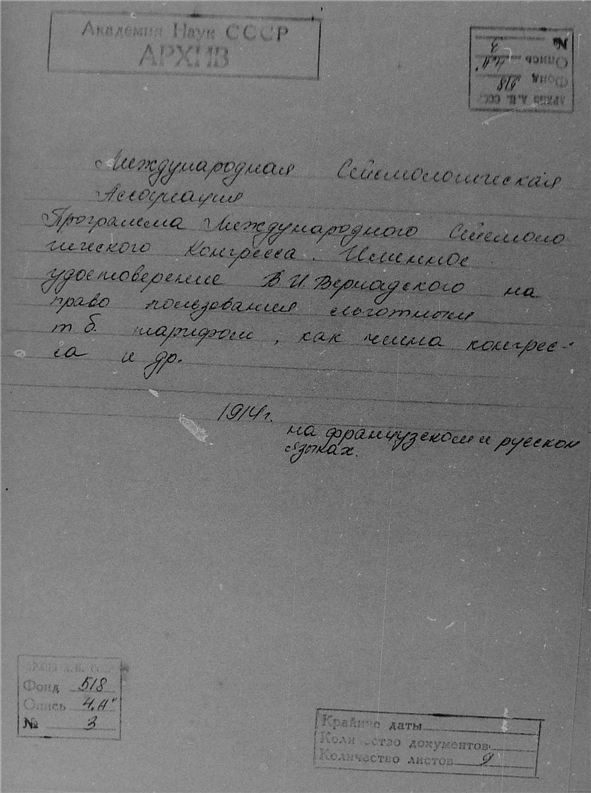 Академия Наук СССР
АРХИВ
АРХИВ А.Н. СССР
Фонд 518
Опись 4.А"
№ 3
Международная Сейсмологическая
Ассоциация
Программа Международного Сейсмоло
гического Конгресса. Именное
удостоверение В.И. Вернадского на
право пользования льготным
тарифом, как члена конгрес-
са и др.
1914г.
на французском и русском
языках.
АРХИВ А.Н. СССР
Фонд 518
Опись 4.А"
№ 3
Крайние даты
Количество документов
Количество листов 9